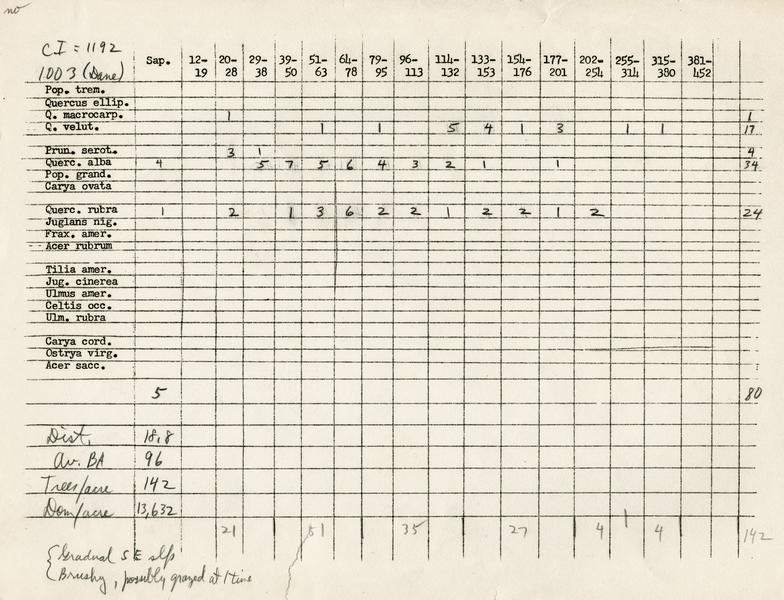 no
CI = 1192
1003 (Dane)
Sap. 12-19 20-28 29-38 39-50 51-63 64-78 79-95 96-113 114-132 133-153 154-176 177-201 202-254 255-314 315-380 381-452
Pop. trem.
Quercus ellip.
Q. macrocarp. 1 1
Q. velut. 1 1 5 4 1 3 1 1 17
Prun. serot. 3 1 4
Querc. alba 4 5 7 5 6 4 3 2 1 1 34
Pop. grand.
Carya ovata
Querc. rubra 1 2 1 3 6 2 2 1 2 2 1 2 24
Juglans nig.
Frax. amer.
Acer rubrum
Tilia amer.
Jug. cinerea
Ulmus amer.
Celtis occ.
Ulm. rubra
Carya cord.
Ostrya virg.
Acer sacc.
5 80
Dist. 18.8
Av. BA 96
Trees/acre 142
Dom/acre 13,632
21 51 35 27 4 4 142
Gradual SE slp
Brushy, possibly grazed at 1 time